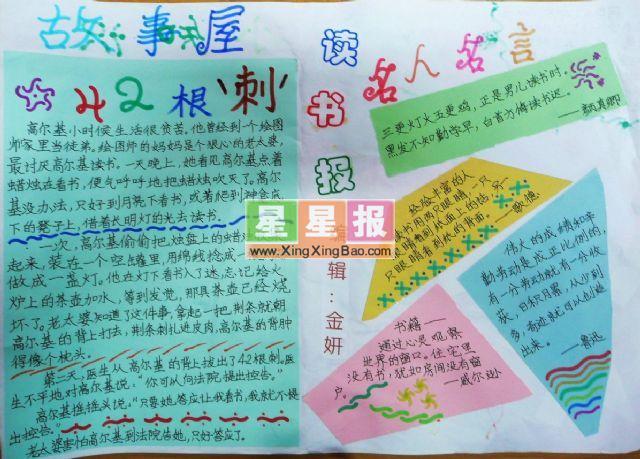 故事屋
42根"刺"
高尔基小时候生活很贫苦。他曾经到一个绘图
师家里当徒弟。绘图师的妈妈是个狠心的老太婆,
最讨厌高尔基读书。一天晚上,她看见高尔基点着
蜡烛在看书,便气呼呼地把蜡烛吹灭了。高尔
基没办法,只好到月亮下看书,或者爬到神龛底
下的凳子上,借着长明灯的光去读书。
一次,高尔基偷偷把烛盘上的蜡
起来,装在一个空
做成一盏灯。他在灯下看书入了迷,忘记给火
炉上的茶壶加水,等到发觉,那具茶壶已经烧
坏了。老太婆知道了这件事,拿起一把荆条就朝
高尔基的背上打去,荆条刺扎进皮肉,高尔基的背肿
得像个枕头。
第二天,医生从高尔基的背上拔出了42根刺。医
生不平地对高尔基说:"你可以向法院提出控告。"
高尔基摇摇头说:"只要她答应让我看书,我就不提
出控告。"
老太婆害怕高尔基到法院告她,只好答应了。
读书报
编辑:金妍
名人名言
三更灯火五更鸡,正是男儿读书时。
黑发不知勤学早,白首方悔读书迟。
——颜真卿
经验丰富的人
读书用两只眼睛,一只
眼睛看到纸面上的话,另一
只眼睛看到纸的背面。
——歌德
伟大的成绩和辛
勤劳动是成正比例的,
有一分劳动就有一分收
获,日积月累,从少到
多,奇迹就可以创造
出来。
——鲁迅
书籍——
通过心灵观察
世界的窗口。住宅里
没有书,犹如房间没有窗
户。
——威尔逊
星星报
www.XingXingBao.com